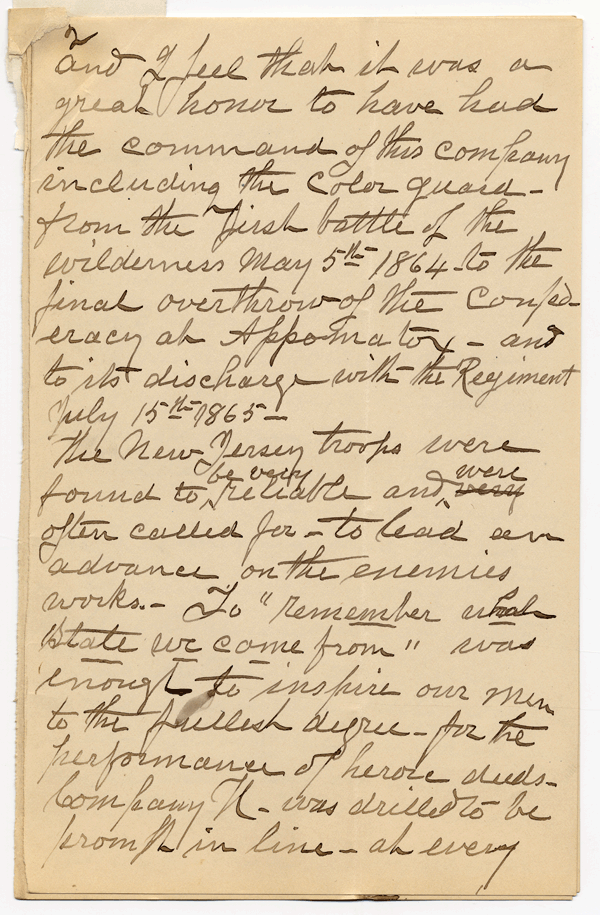 2
and I feel that it was a
great honor to have had
the command of this company
including the Color guard -
from the first battle of the
wilderness May 5th 1864 - to the
final overthrow of the Confed
eracy at Appomatox - and
to its discharge with the Regiment
July 15th 1865 -
The New Jersey troops were
be very were
found to, reliable and, very
often called for - to lead an
advance on the enemies
works. - To "remember what
State we came from" was
enough to inspire our men
to the fullest degree - for the
performance of heroic deeds -
Company K - was drilled to be
prompt in line - at every